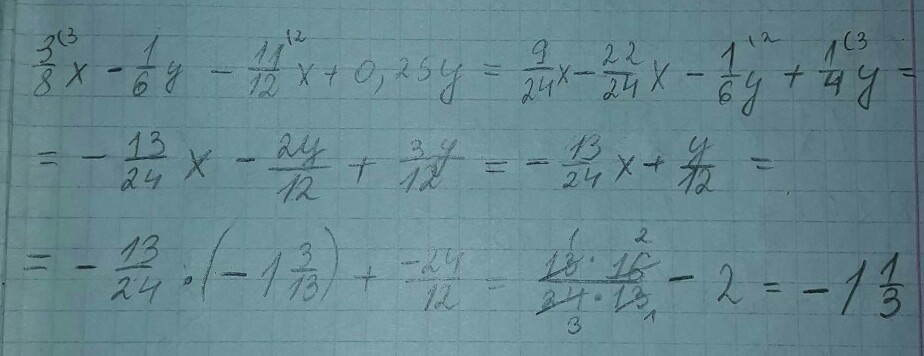 3/8 (3 x - 1/6 y - 11/12 (2 x + 0,25y = 9/24 x - 22/24 x - 1/6 (2 y + 1/4 (3 y =
= - 13/24 x - 2y/12 + 3y/12 = - 13/24 x + y/12 =
= - 13/24 · (- 1 3/13) + -24/12 = 13 · 16 / 24 · 13 1 2 3 1 - 2 = - 1 1/3